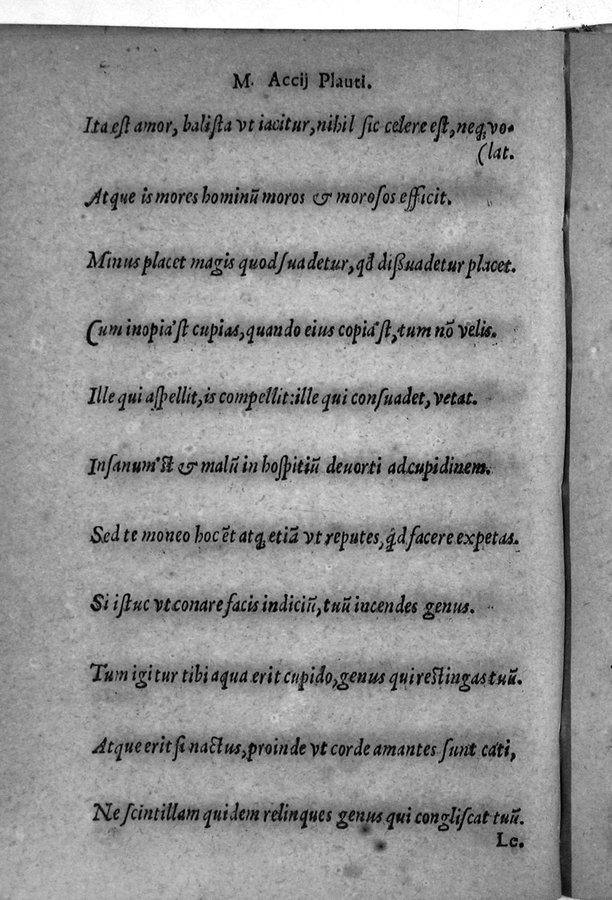 M. Accij Plauti.
Ita est amor, balista vt iacitur, nihil sic celere est, neq; vo-
(lat.
Atque is mores hominū moros & morosos efficit.
Minus placet magis quod suadetur, qđ dissuadetur placet.
Cum inopia'st cupias, quando eius copia'st, tum nō velis.
Ille qui aspellit, is compellit: ille qui consuadet, vetat.
Insanum'st & malū in hospitiū deuorti ad cupidinem.
Sed te moneo hoc ēt atq; etiā vt reputes, qd facere expetas.
Si istuc vt conare facis indiciū, tuū incendes genus.
Tum igitur tibi aqua erit cupido, genus qui restingas tuū.
Atque erit si nactus, proinde vt corde amantes sunt cati,
Ne scintillam quidem relinques genus qui congliscat tuū.
Lc.